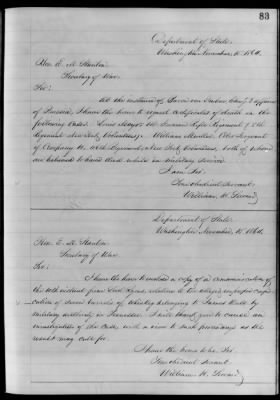 83
Department of State,
Washington November 15 1864.
Hon. E. M. Stanton
Secretary of War.
Sir:
At the instance of Baron von Chargé d'Affaires
of Prussia, I have the honor to request certificates of death in the
following cases. Louis of Rifle Regiment
Regiment New York Volunteers; William
of Company Regiment, New York Volunteers, both of whom
are believed to have died while in military service.
I am Sir
Your obedient servant,
William H. Seward.
Department of State,
Washington, November, 15 1864.
Hon. E. M. Stanton
Secretary of War
Sir:
I have the honor to enclose a copy of a communication of
the 10th instant from Lord Lyons, relative to the alleged
of seven barrels of Whiskey belonging to James by
military authority in Tennessee. I will thank you to cause an
investigation of the case, with a view to such proceedings as the
result may call for.
I have the honor to be Sir
Your obedient servant
William H. Seward.